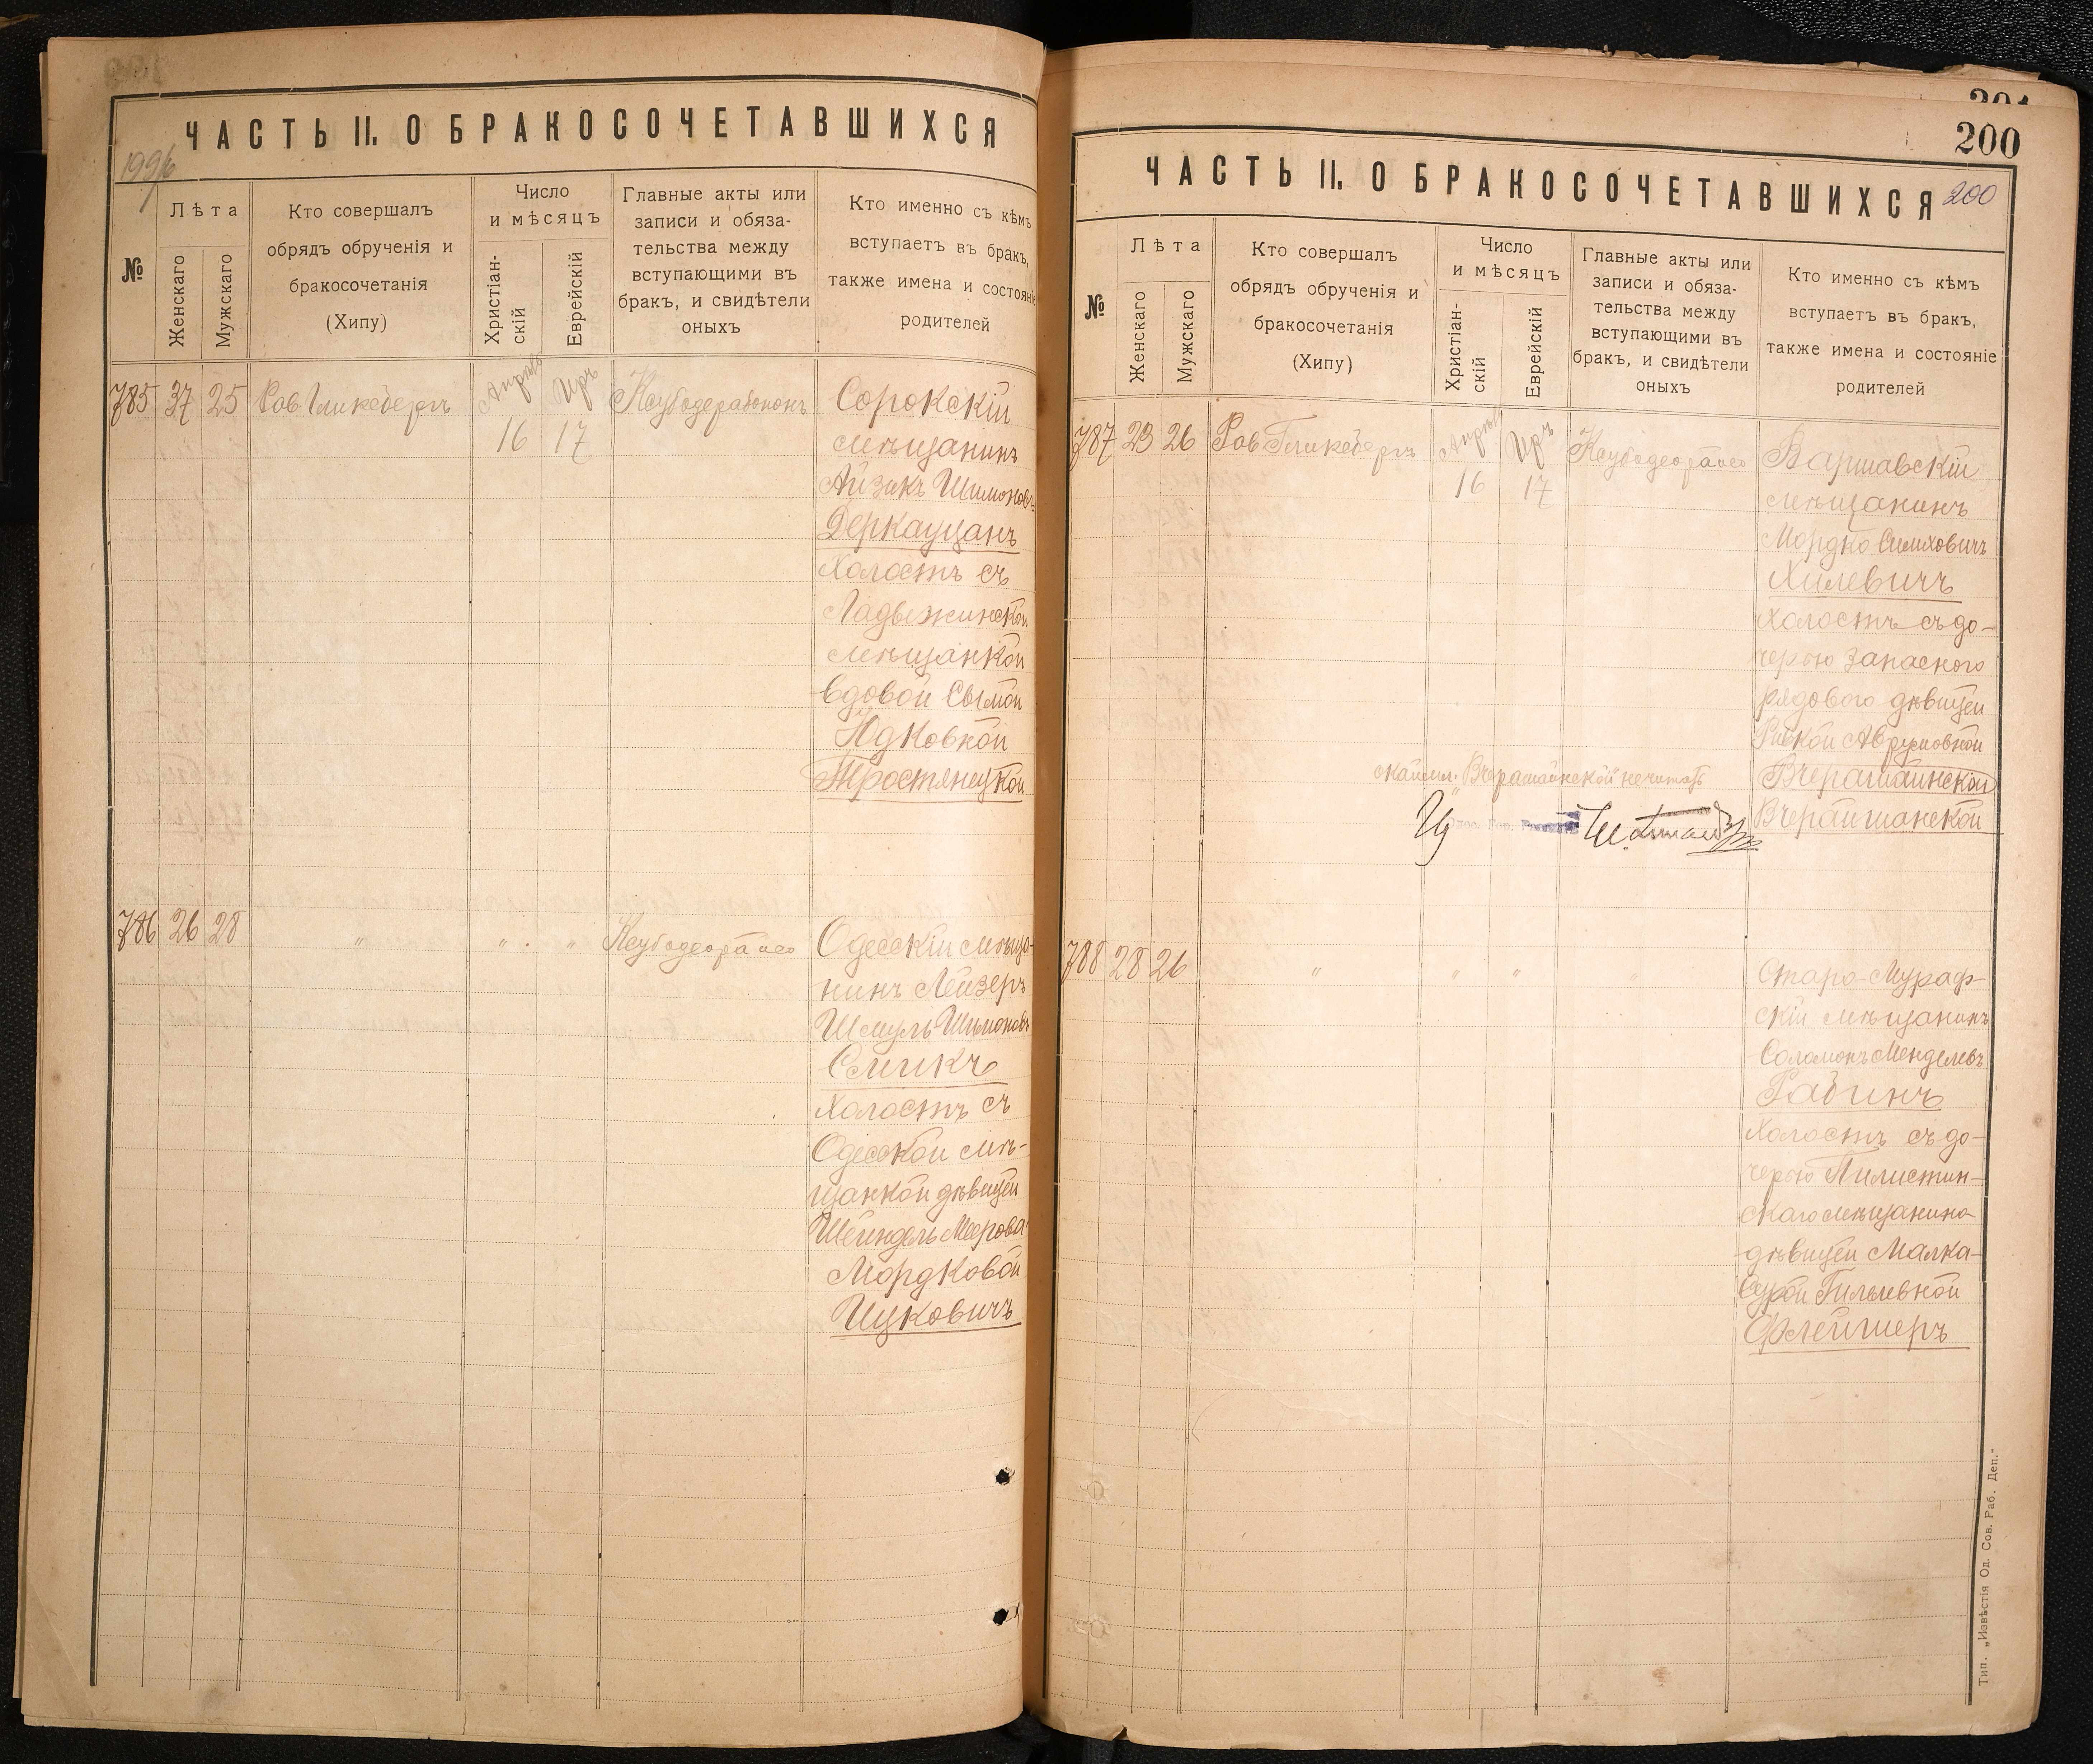 ЧАСТЬ II. О БРАКОСОЧЕТАВШИХСЯ
№
Лѣта
Женскаго
Мужскаго
Кто совершалъ
обрядъ обрученія и
бракосочетанія
(Хипу)
Число
и мѣсяцъ
Христіан-
скій
Еврейскій
Главные акты или
записи и обяза-
тельства между
вступающими въ
бракъ, и свидѣтели
оныхъ
Кто именно съ кѣмъ
вступаетъ въ бракъ,
также имена и состояніе
родителей
785 37 25 Рав. Гликсбергъ
Апрѣль Иръ
16 17
Сорокскій
мѣщанинъ
Айзикъ Шимоновъ
Деркауцанъ
Холостъ съ
Ладыжинской
мѣщанкой
вдовой Сымой
Юдковной
Тростянецкой
786 26 28 " " "
Одесскій мѣща-
нинъ Лейзеръ
Шмуль Шимоновъ
Смикъ
Холостъ съ
Одесской мѣ-
щанкой дѣвицей
Шейндель Меерова
Мордковой
Ицковичъ
200
ЧАСТЬ II. О БРАКОСОЧЕТАВШИХСЯ
200
№
Лѣта
Женскаго
Мужскаго
Кто совершалъ
обрядъ обрученія и
бракосочетанія
(Хипу)
Число
и мѣсяцъ
Христіан-
скій
Еврейскій
Главные акты или
записи и обяза-
тельства между
вступающими въ
бракъ, и свидѣтели
оныхъ
Кто именно съ кѣмъ
вступаетъ въ бракъ,
также имена и состояніе
родителей
787 23 26 Рав. Гликсбергъ
Апрѣль Иръ
16 17
Варшавскій
мѣщанинъ
Мордко Симховичъ
Хилевичъ
Холостъ съ до-
черью запасного
рядового дѣвицей
Ривкой Аврумовной
Вчерашаинской
Вчерайшанской
Вчерашаинской не читать
788 28 26 " " " "
Старо-Мураф-
скій мѣщанинъ
Соломонъ Менделевъ
Рабинъ
Холостъ съ до-
черью Пилистин-
скаго мѣщанина
дѣвицей Малка-
Сурой Гильевной
Флейшеръ
Тип. „Извѣстія Од. Сов. Раб. Деп."